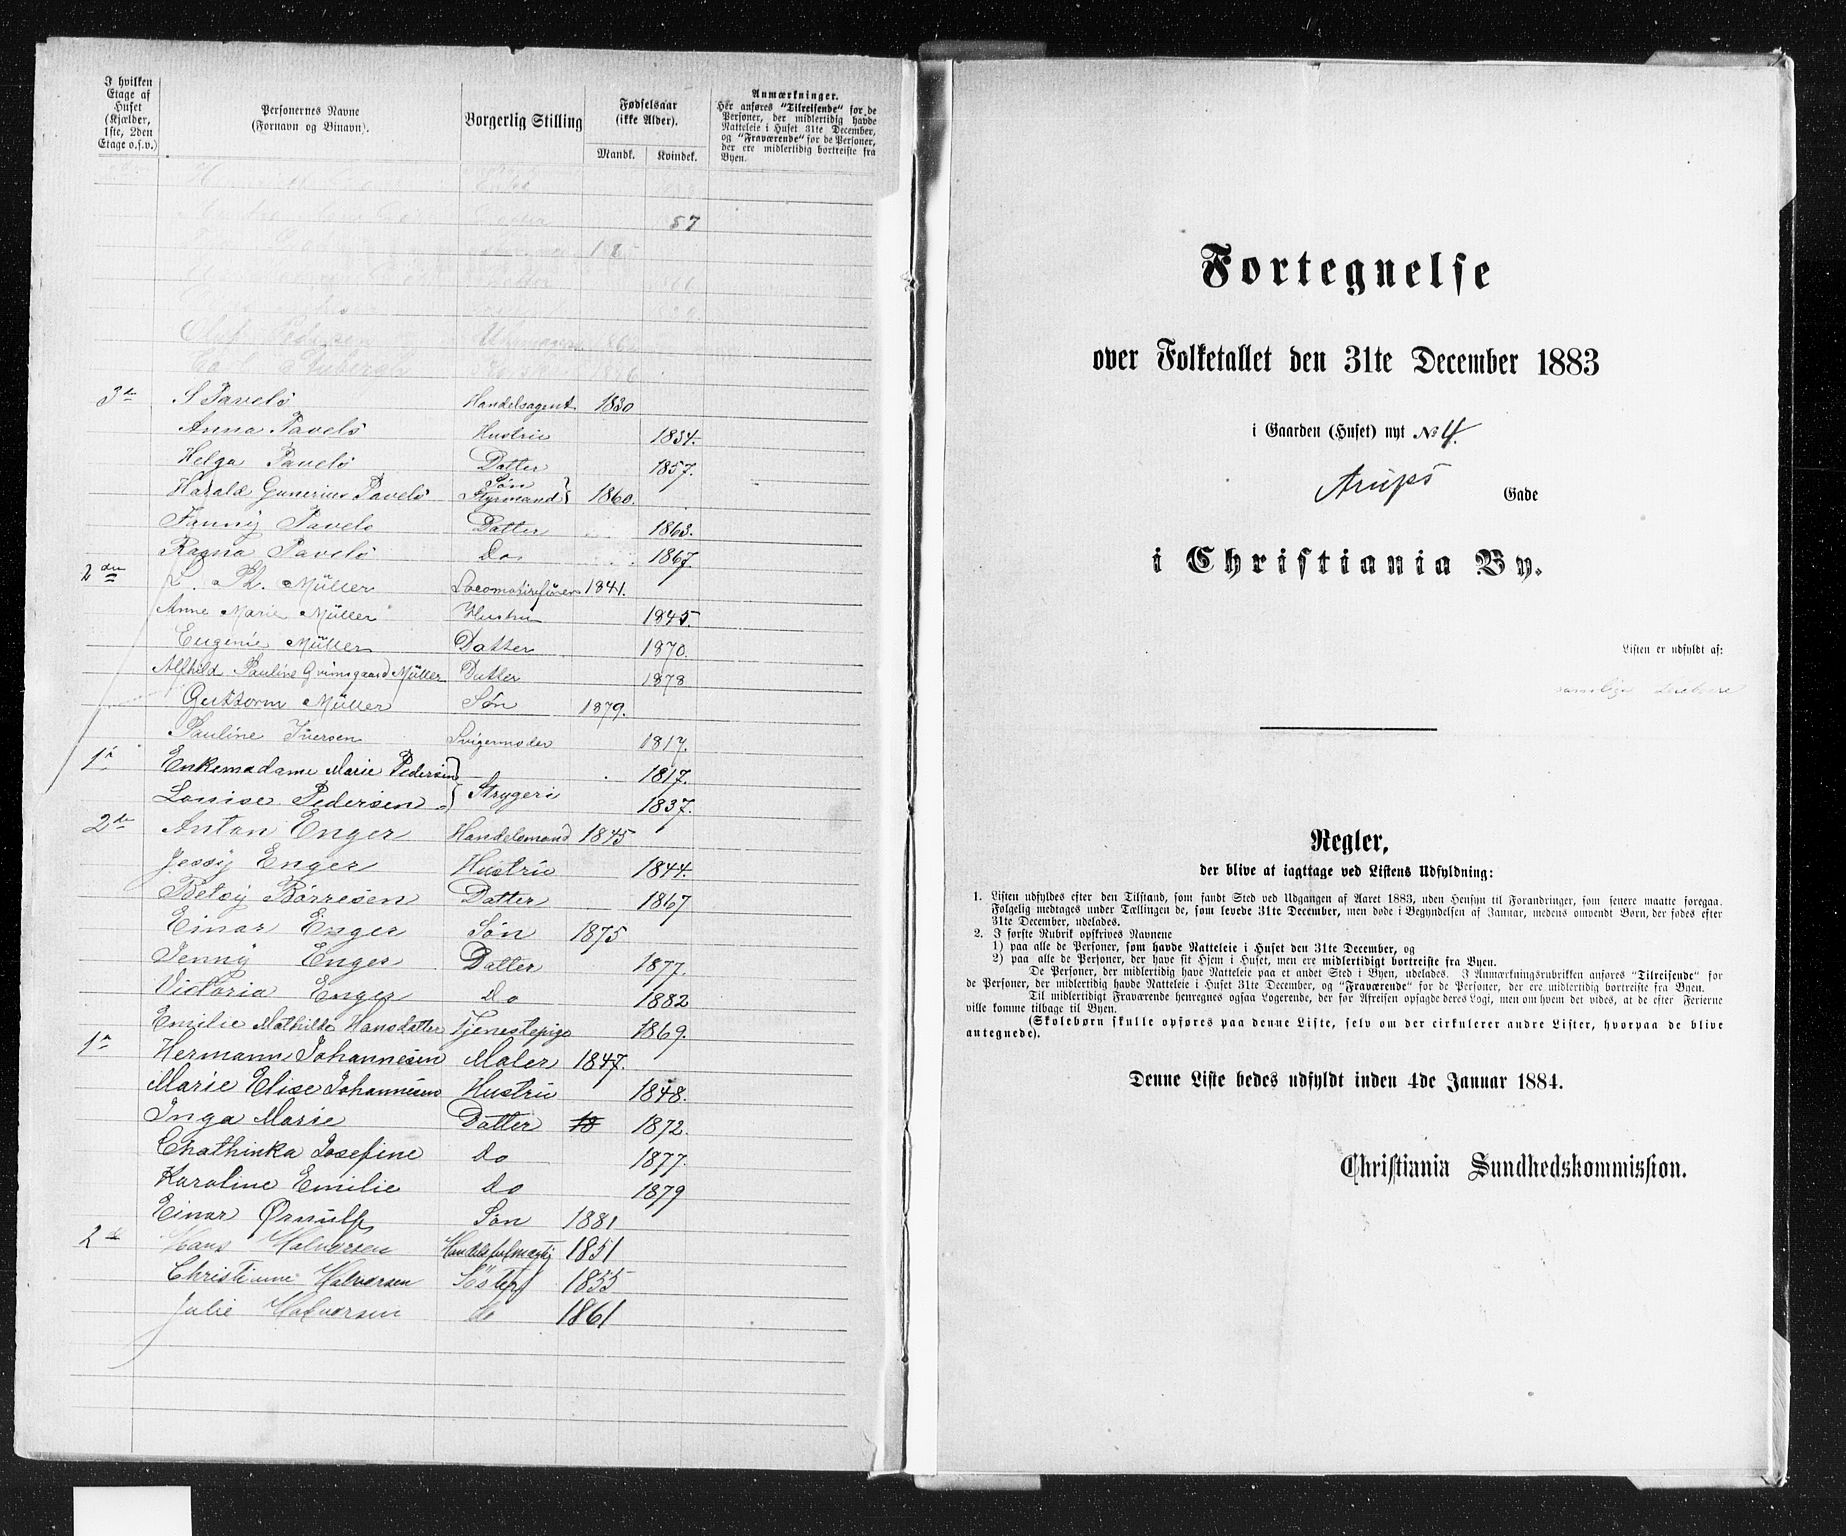 I hvilken
Etage af
Huset
(Kjælder,
1ste, 2den
Etage o.s.v.)
Personernes Navne
(Fornavn og Binavn).
Borgerlig Stilling
Fødselsaar
(ikke Alder).
Mandk. Kvindek.
Anmærkninger.
Her anføres "Tilreisende" for de
Personer, der midlertidig havde
Natteleie i Huset 31te December,
og "Fraværende" for de Personer,
der ere midlertidig bortreiste fra
Byen.
Enke
Datter 57
Datter
Olaf Pedersen
Carl
3die S Pavels Handelsagent 1830
Anna Pavels Hustru 1834.
Helga Pavels Datter 1857.
Harald Gunerius Pavels Søn Styrmand 1860.
Fanny Pavels Datter 1863.
Ragna Pavels Do 1867.
2den L. Th. Müller Locomotivfører 1841.
Anne Marie Müller Hustru 1845.
Eugenie Müller Datter 1870.
Alfhild Pauline Grimsgaard Müller Datter 1878
Guttorm Müller Søn 1879.
Pauline Iversen Svigermoder 1817.
1ste Enkemadame Marie Pedersen 1817.
Louise Pedersen Strygeri 1837.
2den Anton Enger Handelsmand 1845
Jessy Enger Hustru 1844.
Betsy Børresen Datter 1867
Einar Enger Søn 1875
Jenny Enger Datter 1877.
Victoria Enger Do 1882
Emilie Mathilde Hansdatter Tjenestepige 1869.
1ste Hermann Johannesen Maler 1847.
Marie Elise Johannesen Hustru 1848.
Inga Marie Datter 18 1872.
Chathinka Josefine Do 1877.
Karoline Emilie Do 1879
Einar Ørnulf Søn 1881
2den Hans Halvorsen Handelsfuldmægtig 1851
Christianne Halvorsen Søster 1855
Julie Halvorsen do 1861
Fortegnelse
over Folketallet den 31te December 1883
i Gaarden (Huset) nyt No 4.
Arups Gade
i Christiania By.
Listen er udfyldt af:
samtlige Leieboere
Regler,
der blive at iagttage ved Listens Udfyldning:
1. Listen udfyldes efter den Tilstand, som fandt Sted ved Udgangen af Aaret 1883, uden Hensyn til Forandringer, som senere maatte foregaa.
Følgelig medtages under Tællingen de, som levede 31te December, men døde i Begyndelsen af Januar, medens omvendt Børn, der fødes efter
31te December, udelades.
2. I første Rubrik opskrives Navnene
1) paa alle de Personer, som havde Natteleie i Huset den 31te December, og
2) paa alle de Personer, der have sit Hjem i Huset, men ere midlertidigt bortreiste fra Byen.
De Personer, der midlertidig have Natteleie paa et andet Sted i Byen, udelades. I Anmærkningsrubrikken anføres "Tilreisende" for
de Personer, der midlertidig havde Natteleie i Huset 31te December, og "Fraværende" for de Personer, der ere midlertidig bortreiste fra Byen.
Til midlertidigt Fraværende henregnes ogsaa Logerende, der før Afreisen opsagde deres Logi, men om hvem det vides, at de efter Ferierne
ville komme tilbage til Byen.
(Skolebørn skulle opføres paa denne Liste, selv om der cirkulerer andre Lister, hvorpaa de blive
antegnede).
Denne Liste bedes udfyldt inden 4de Januar 1884.
Christiania Sundhedskommission.